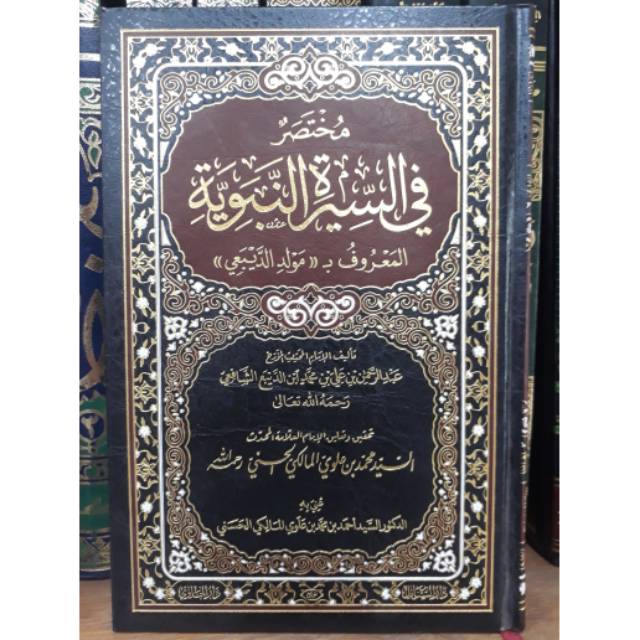 مُخْتَصَرٌ
فِي السِّيْرَةِ النَّبَوِيَّةِ
المَعْرُوفُ بـ «مَوْلِد الدَّيْبَعِي»
تأليف الإمام المحدث المؤرخ
عبد الرحمن بن علي بن محمد ابن الديبع الشافعي
رحمه الله تعالى
تحقيق وتعليق الإمام العلامة المحدث
السيد محمد بن علوي المالكي الحسني رحمه الله
عُني به
الدكتور السيد أحمد بن محمد بن علوي المالكي الحسني